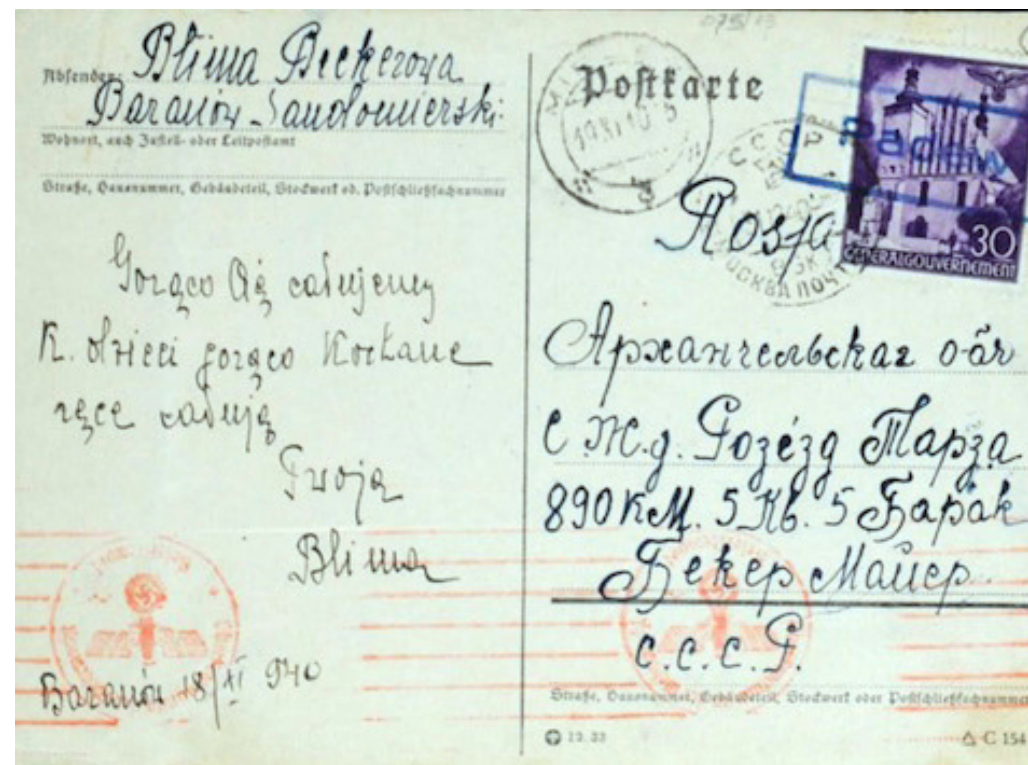 Absender: Blima Beckerowa
Baranów Sandomierski
Wohnort, auch Zustell- oder Leitpostamt
Straße, Hausnummer, Gebäudeteil, Stockwerk od. Postschließfachnummer
Gorąco Cię całujemy
K. dzieci gorąco Kochane
ręce całują
Twoja
Blima
Baranów 18/XI 940
Postkarte
30
GENERALGOUVERNEMENT
СССР
МОСКВА ПОЧТ
Rosja
Архангельская о-бл
С Ж.д. Розéзд Тарза
890 КМ. 5 Кв. 5 Барак
Бекер Майер
С.С.С.Р.
Straße, Hausnummer, Gebäudeteil, Stockwerk oder Postschließfachnummer
12. 33
C 154